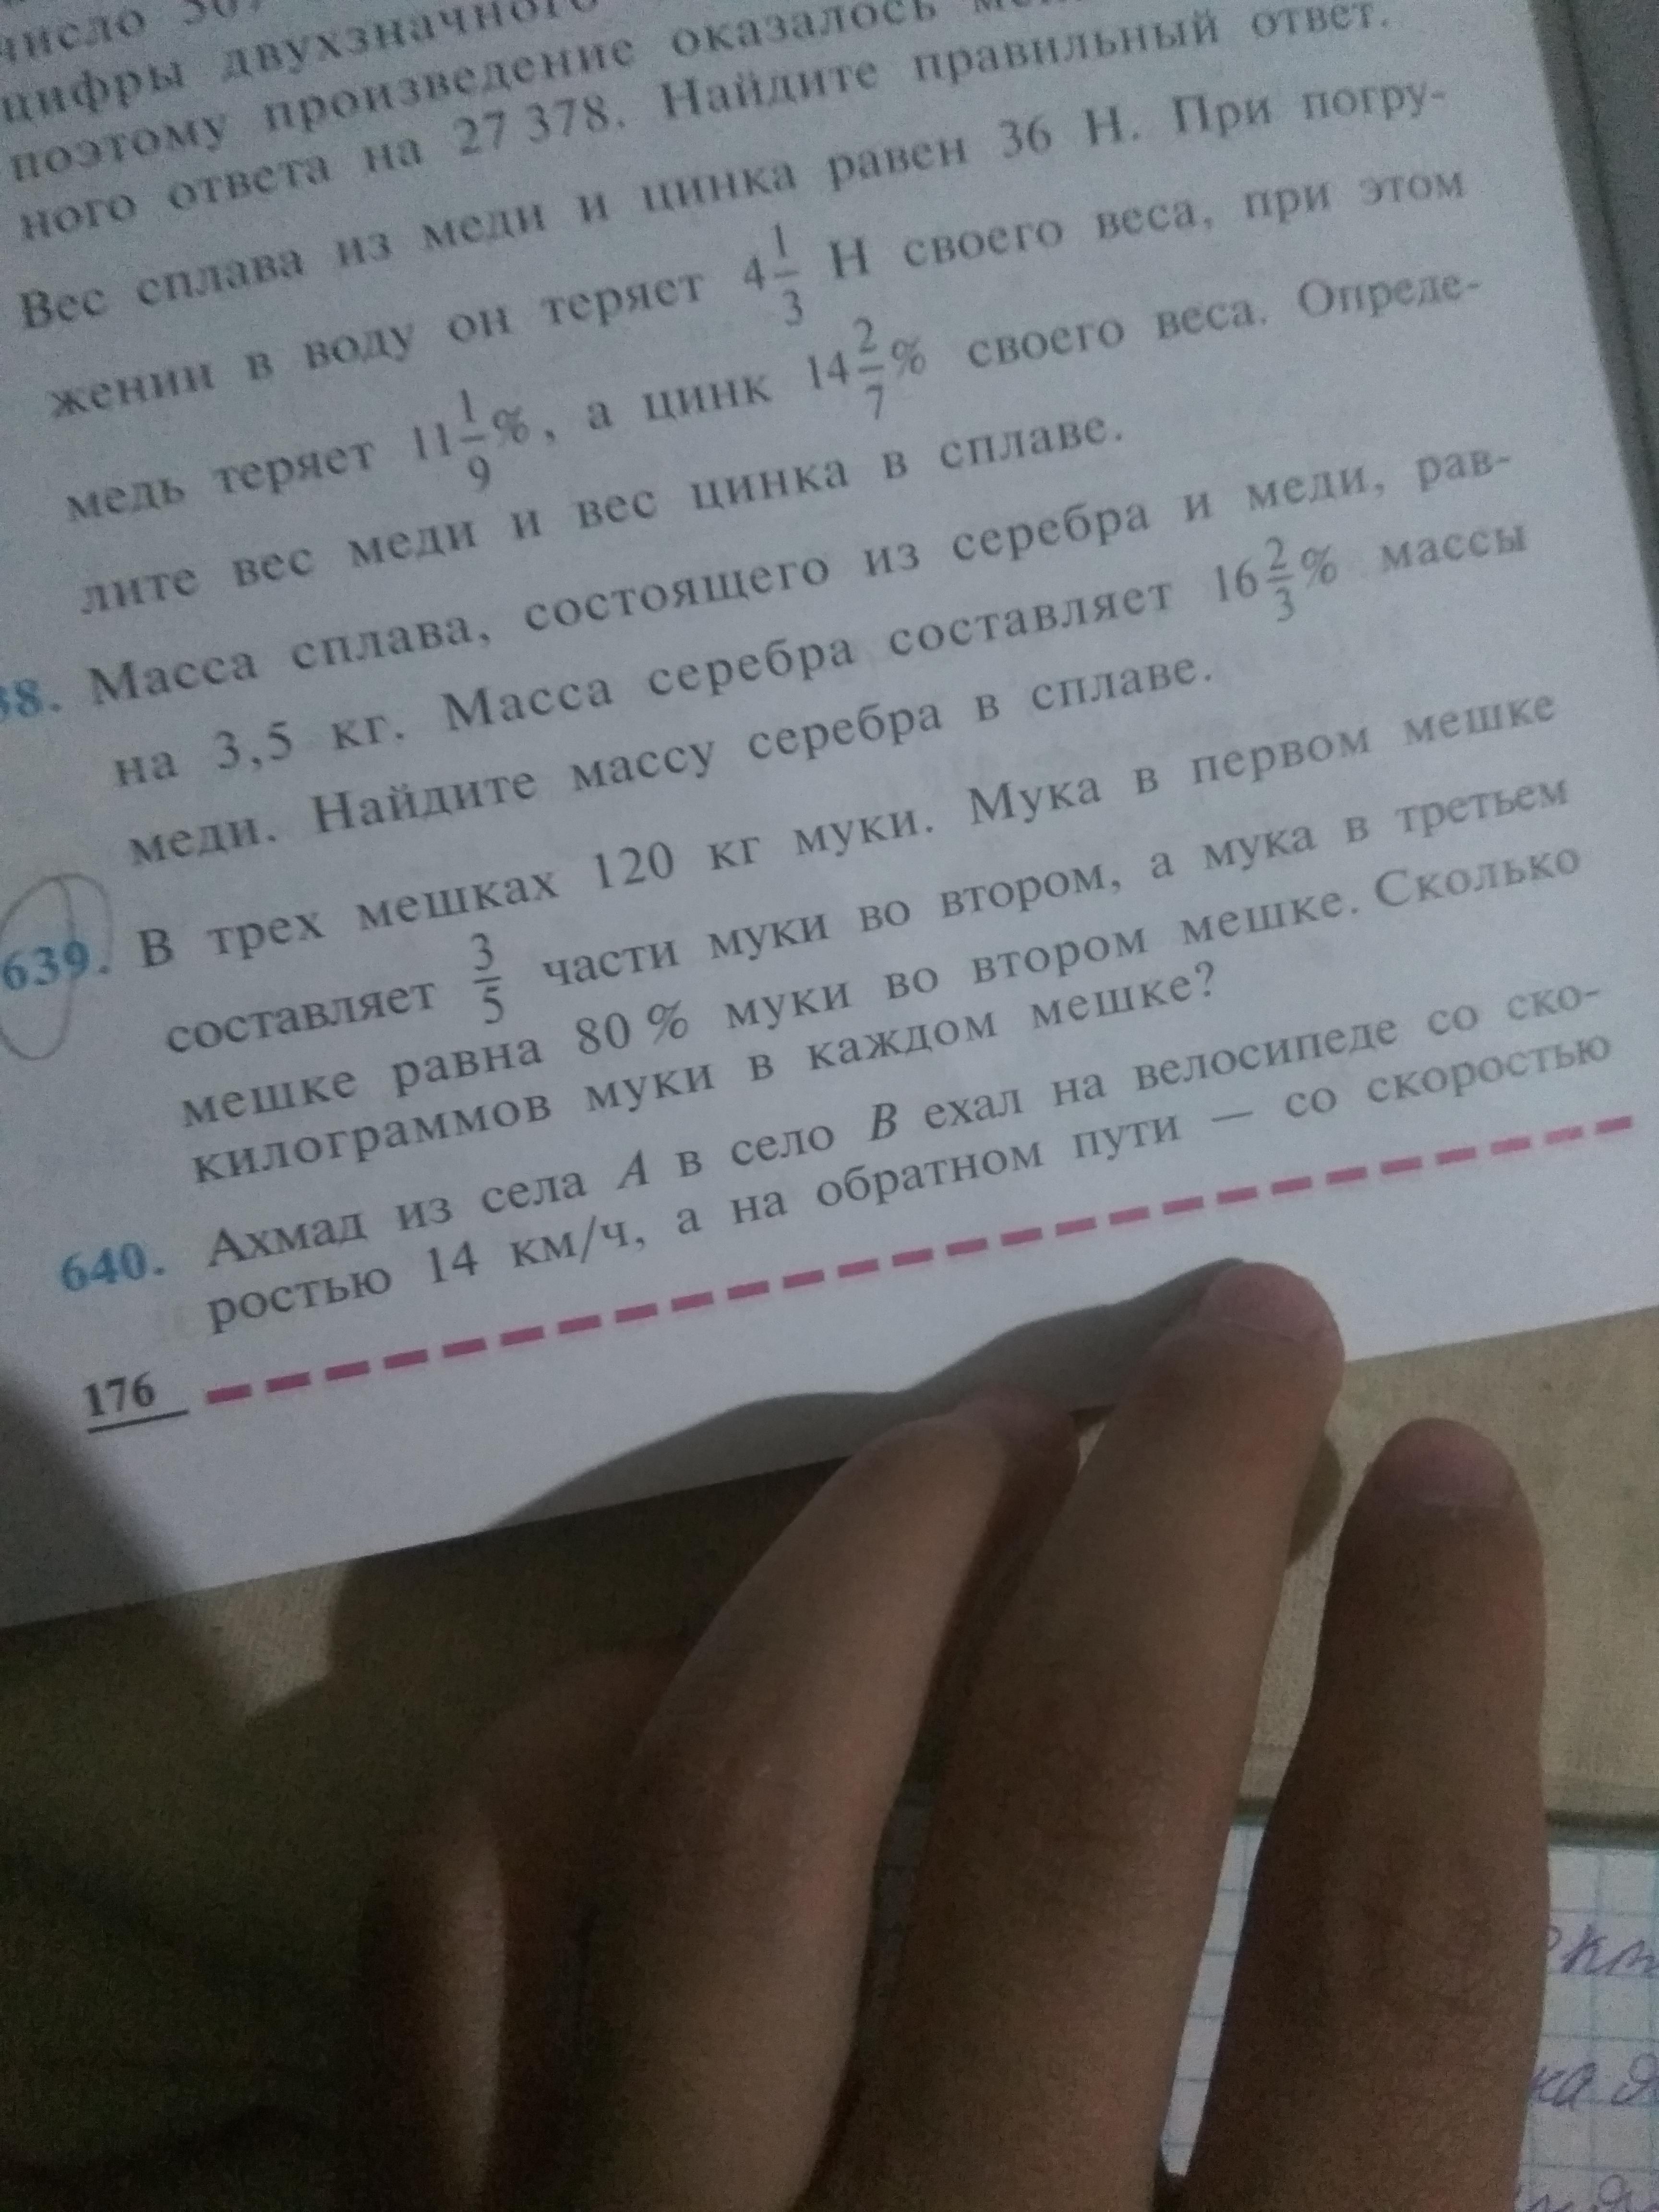 число
цифры двузначного
поэтому произведение оказалось
ного ответа на 27 378. Найдите правильный ответ.
Вес сплава из меди и цинка равен 36 Н. При погру-
жении в воду он теряет 4 1/3 Н своего веса, при этом
медь теряет 11 1/9 %, а цинк 14 2/7 % своего веса. Опреде-
лите вес меди и вес цинка в сплаве.
38. Масса сплава, состоящего из серебра и меди, рав-
на 3,5 кг. Масса серебра составляет 16 2/3 % массы
меди. Найдите массу серебра в сплаве.
639. В трех мешках 120 кг муки. Мука в первом мешке
составляет 3/5 части муки во втором, а мука в третьем
мешке равна 80 % муки во втором мешке. Сколько
килограммов муки в каждом мешке?
640. Ахмад из села A в село B ехал на велосипеде со ско-
ростью 14 км/ч, а на обратном пути — со скоростью
176